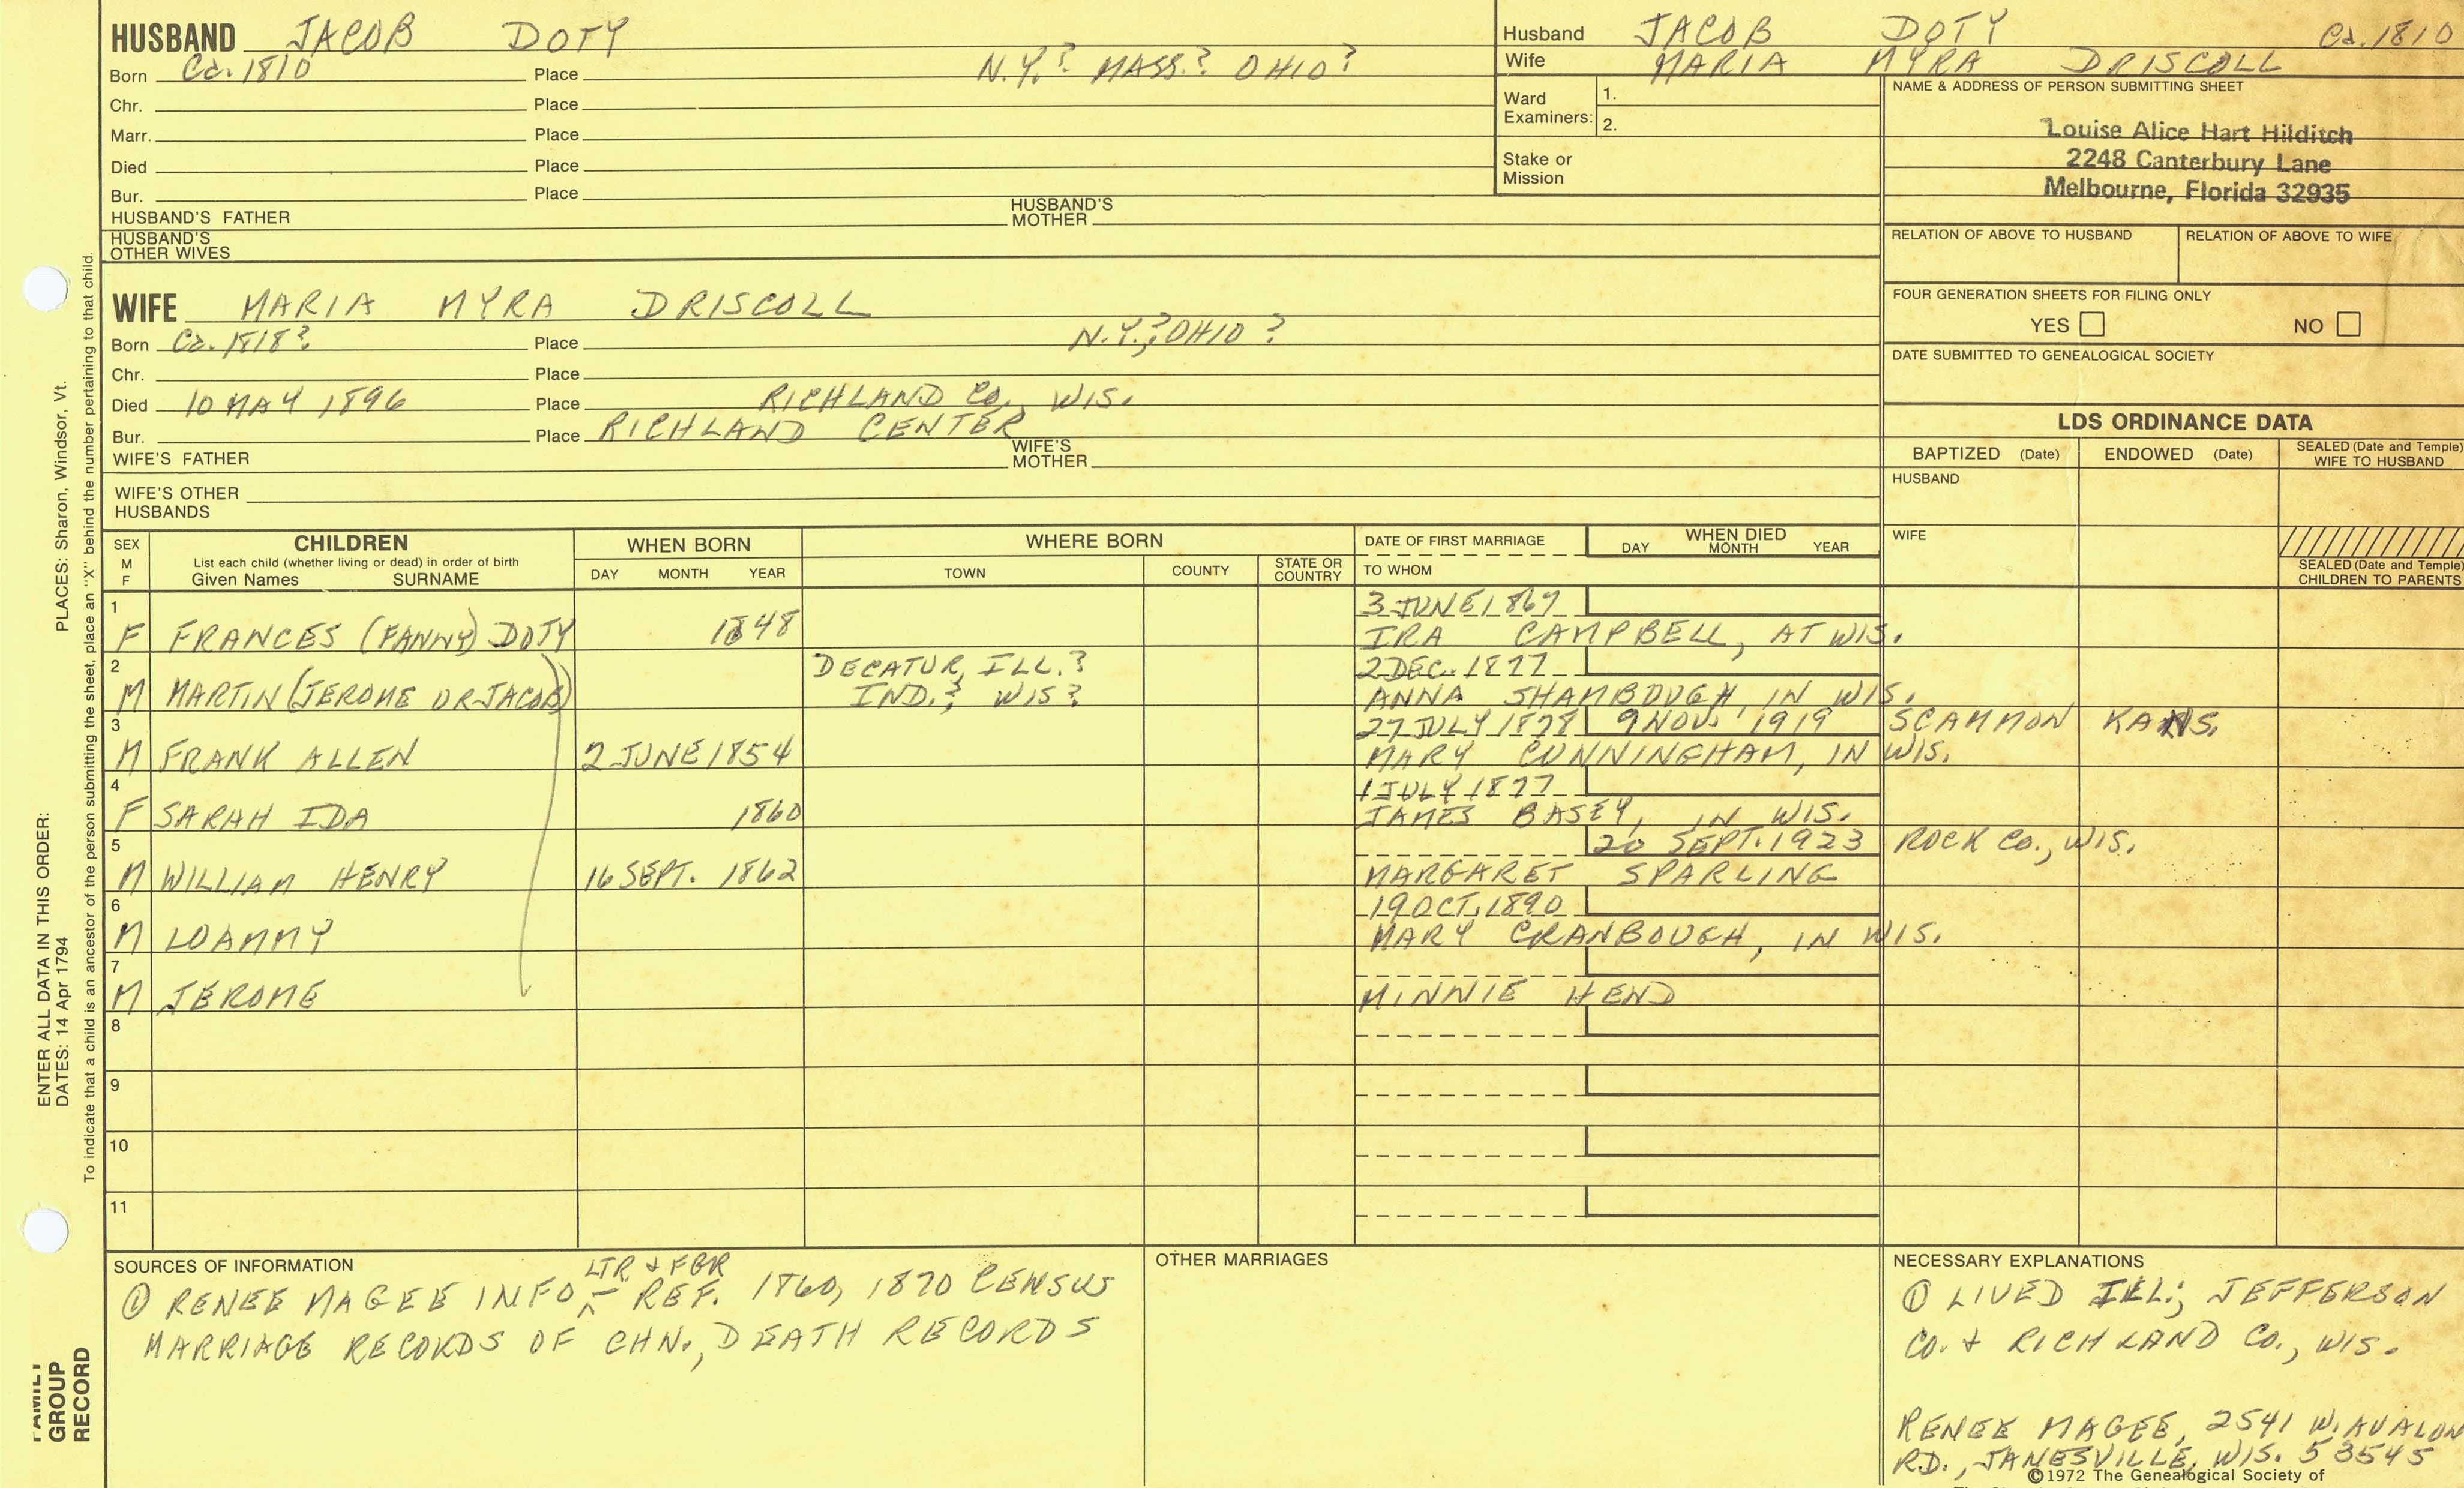 HUSBAND JACOB DOTY
Born Ca. 1810 Place N.Y.? MASS.? OHIO?
Chr. Place
Marr. Place
Died Place
Bur. Place
HUSBAND'S FATHER HUSBAND'S MOTHER
HUSBAND'S OTHER WIVES
Husband JACOB DOTY Ca. 1810
Wife MARIA MYRA DRISCOLL
Ward Examiners: 1.
2.
Stake or Mission
NAME & ADDRESS OF PERSON SUBMITTING SHEET
Louise Alice Hart Hilditch
2248 Canterbury Lane
Melbourne, Florida 32935
RELATION OF ABOVE TO HUSBAND RELATION OF ABOVE TO WIFE
FOUR GENERATION SHEETS FOR FILING ONLY
YES NO
DATE SUBMITTED TO GENEALOGICAL SOCIETY
WIFE MARIA MYRA DRISCOLL
Born Ca. 1818? Place N.Y.?, OHIO ?
Chr. Place
Died 10 MAY 1896 Place RICHLAND Co., WIS.
Bur. Place RICHLAND CENTER
WIFE'S FATHER WIFE'S MOTHER
WIFE'S OTHER HUSBANDS
LDS ORDINANCE DATA
BAPTIZED (Date) ENDOWED (Date) SEALED (Date and Temple) WIFE TO HUSBAND
HUSBAND
WIFE
SEALED (Date and Temple) CHILDREN TO PARENTS
SEX M F
CHILDREN
List each child (whether living or dead) in order of birth
Given Names SURNAME
WHEN BORN
DAY MONTH YEAR
WHERE BORN
TOWN COUNTY STATE OR COUNTRY
DATE OF FIRST MARRIAGE
TO WHOM
WHEN DIED
DAY MONTH YEAR
1 3 JUNE 1867
F FRANCES (FANNY) DOTY 1848 IRA CAMPBELL, AT WIS.
2 DECATUR, ILL.? 2 DEC. 1877
M MARTIN (JEROME OR JACOB) IND.? WIS? ANNA SHAMBOUGH, IN WIS.
3 27 JULY 1878 9 NOV. 1919 SCAMMON KANS.
M FRANK ALLEN 2 JUNE 1854 MARY CUNNINGHAM, IN WIS.
4 1 JULY 1877
F SARAH IDA 1860 JAMES BASEY, IN WIS.
5 20 SEPT. 1923 ROCK Co., WIS.
M WILLIAM HENRY 16 SEPT. 1862 MARGARET SPARLING
6 19 OCT. 1890
M LOAMMY MARY CRANBOUGH, IN WIS.
7
M JEROME MINNIE HEND
8
9
10
11
SOURCES OF INFORMATION
LTR & FGR
① RENEE MAGEE INFO - REF. 1860, 1870 CENSUS
MARRIAGE RECORDS OF CHN., DEATH RECORDS
OTHER MARRIAGES
NECESSARY EXPLANATIONS
① LIVED ILL.; JEFFERSON
CO. & RICHLAND CO., WIS.
RENEE MAGEE, 2541 W. AVALON
RD., JANESVILLE, WIS. 53545
©1972 The Genealogical Society of
ENTER ALL DATA IN THIS ORDER:
DATES: 14 Apr 1794 PLACES: Sharon, Windsor, Vt.
To indicate that a child is an ancestor of the person submitting the sheet, place an "X" behind the number pertaining to that child.
FAMILY
GROUP
RECORD